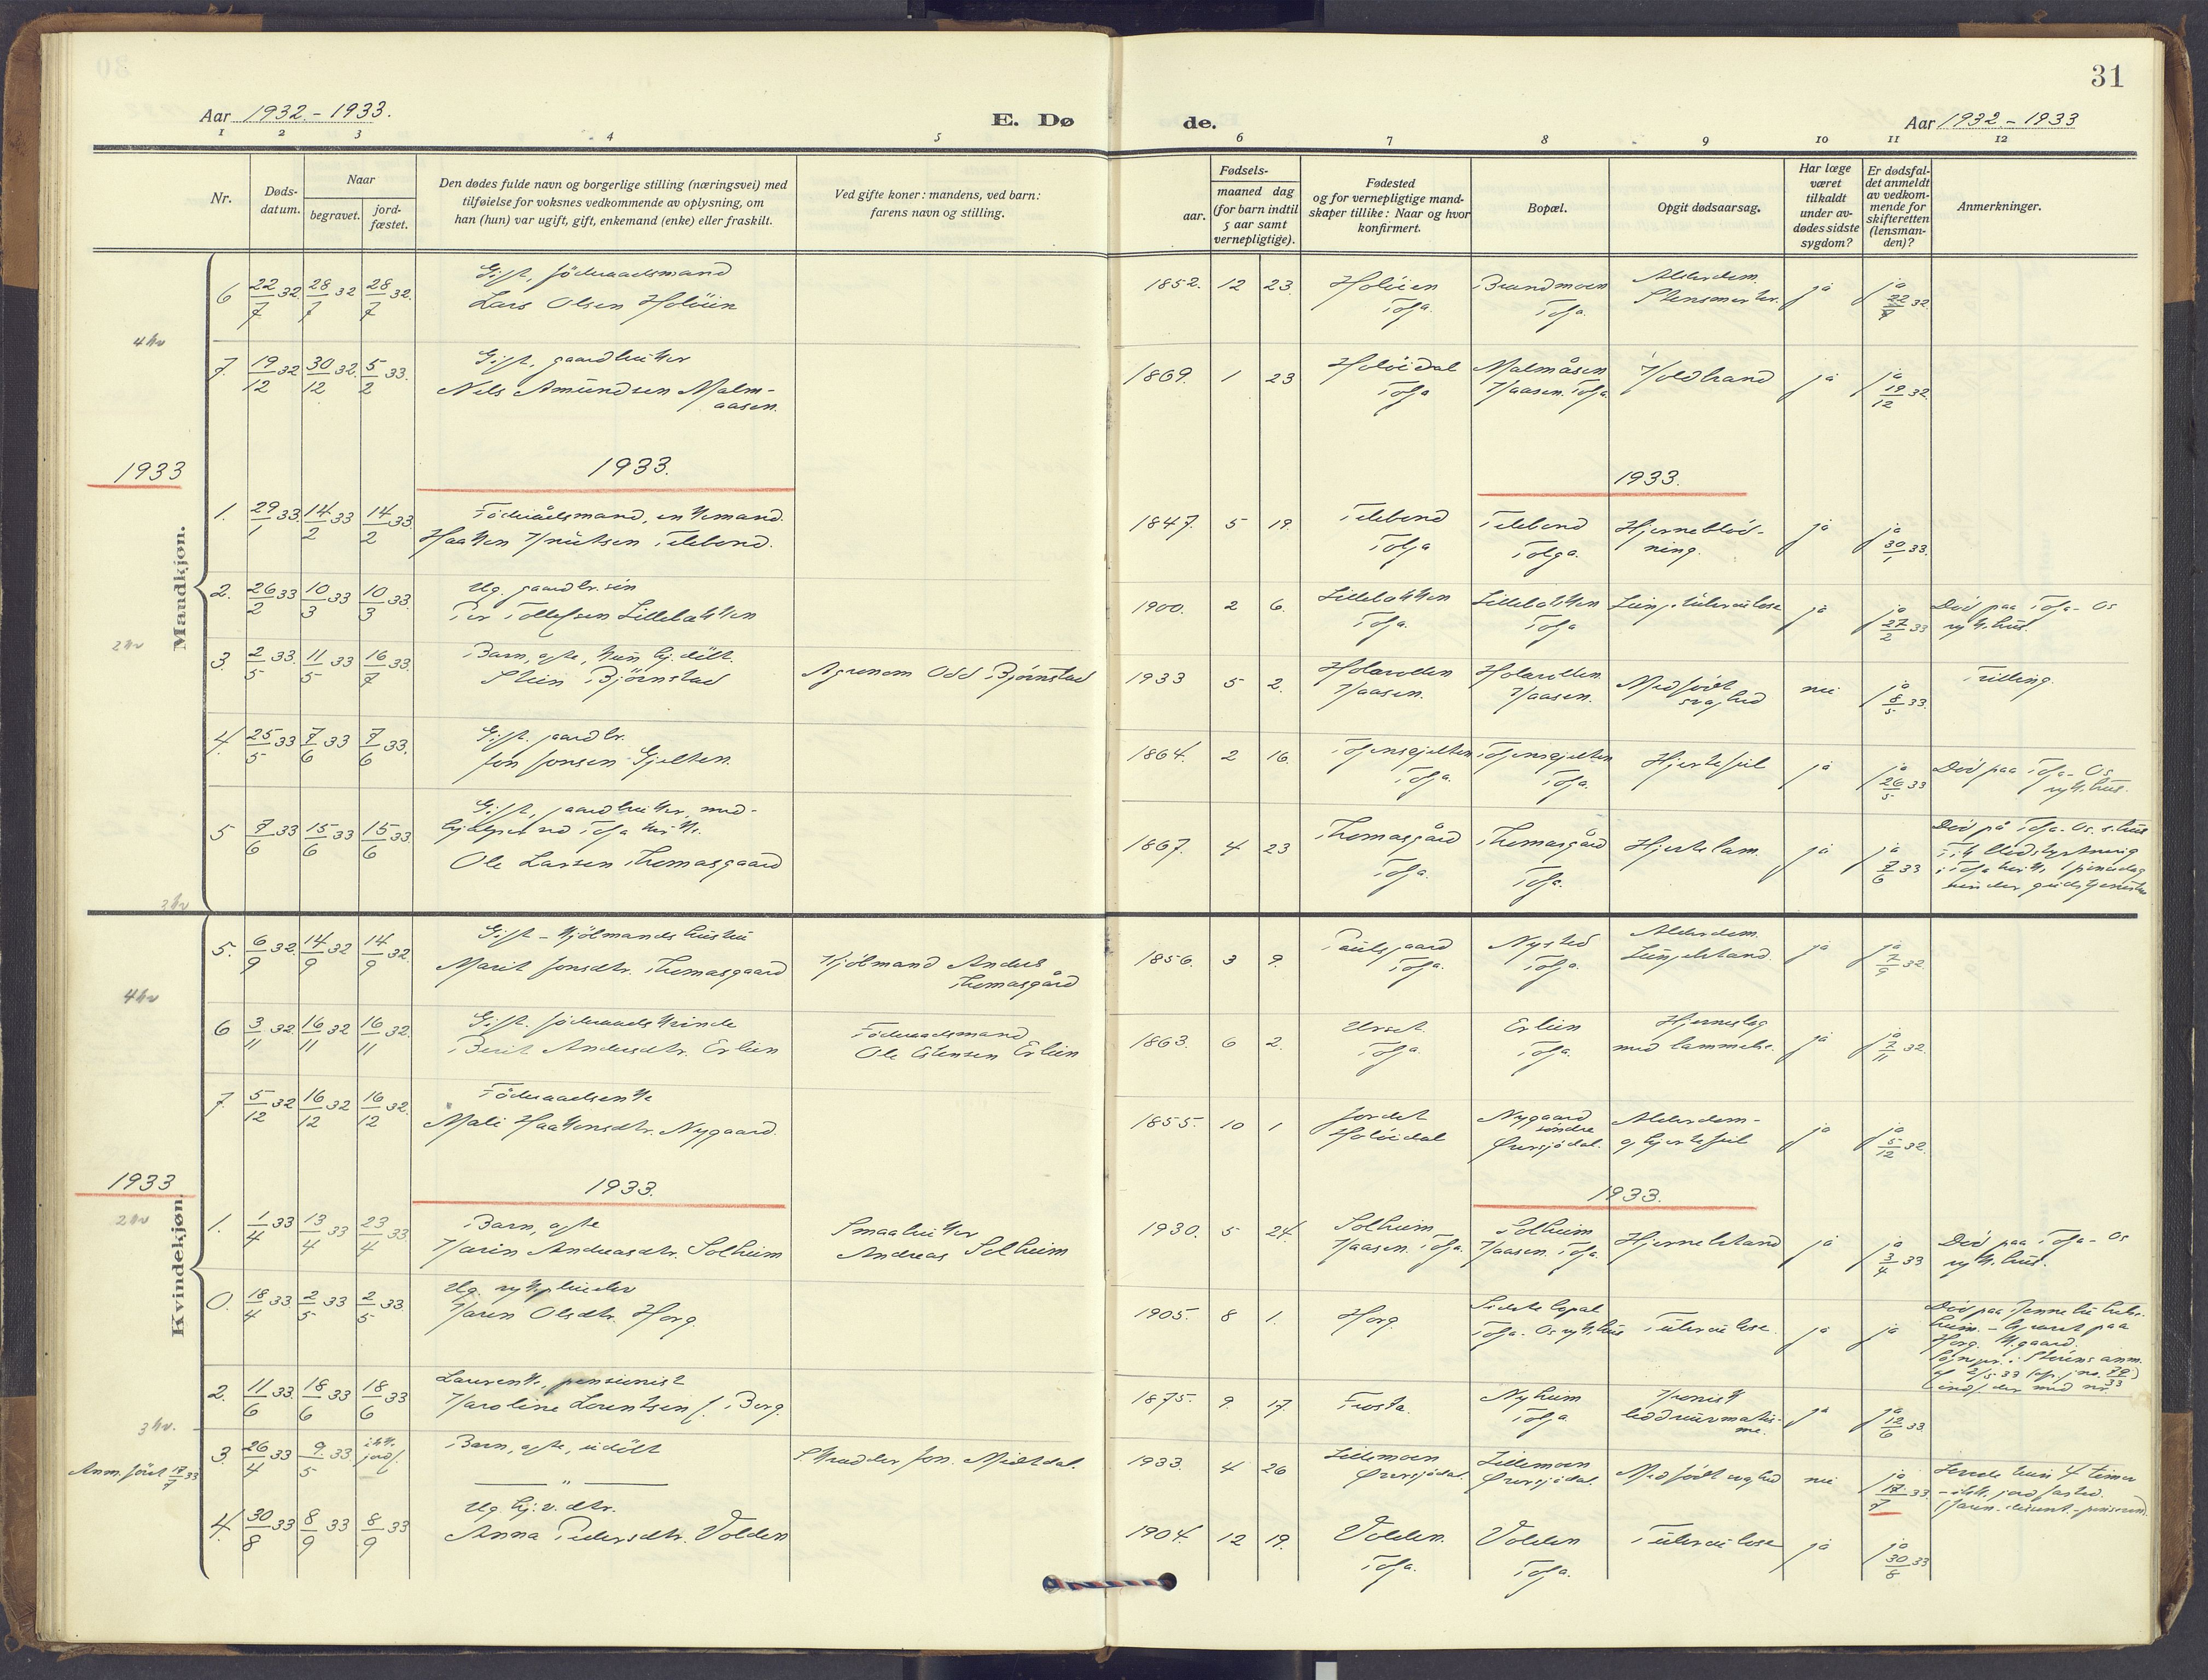 31
Aar 1932.-1933.
E. Dø
de.
Aar 1932.-1933
1 2 3 4 5 6 7 8 9 10 11 12
Nr.
Døds-
datum.
Naar
begravet.
jord-
fæstet.
Den dødes fulde navn og borgerlige stilling (næringsvei) med
tilføielse for voksnes vedkommende av oplysning, om
han (hun) var ugift, gift, enkemand (enke) eller fraskilt.
Ved gifte koner: mandens, ved barn:
farens navn og stilling.
Fødsels-
aar.
maaned dag
(for barn indtil
5 aar samt
vernepligtige).
Fødested
og for vernepligtige mand-
skaper tillike: Naar og hvor
konfirmert.
Bopæl.
Opgit dødsaarsag.
Har læge
været
tilkaldt
under av-
dødes sidste
sygdom?
Er dødsfal-
det anmeldt
av vedkom-
mende for
skifteretten
(lensman-
den)?
Anmerkninger.
Mandkjøn.
6 22/7 32 28/7 32 28/7 32. Gift, föderaadsmand
Lars Olsen Holöien
1852. 12 23 Holöien Tolga. Brandmoen Tolga. Alderdom. ja ja 22/7 32.
7. 19/12 32 30/12 32. 5/2 33. Gift, gaardbruker
Nels Amundsen Malm-
aasen.
1869. 1 23 Holöidal Tolga Malmåsen Haasen. Tolga Koldbrand ja ja 19/12 32.
1933 1933. 1933.
1. 29/1 33. 14/2 33 14/2 33 Föderådsmand, enkemand.
Haaken Knutsen Telebond.
1847. 5 19 Telebond Tolga Telebond Tolga. Hjerneblöd-
ning. ja ja 30/1 33.
2. 26/2 33 10/3 33 10/3 33. Ug. gaardbr. sön
Per Tollefsen Lillebakken
1900. 2 6. Lillebakken Tolga. Lillebakken Tolga Lungetuberculose ja ja 27/2 33 Död paa Tolga-Os
sykehus.
3. 2/5 33. 11/5 33 16/7 33. Barn, ekte, hj. döbt.
Stein Björnstad
Agronom Odd Bjørnstad
1933 5 2. Holarollen Haasen. Holarollen Haasen. Medfödt
svaghed nei ja 8/5 33. Trilling.
4. 25/5 33 7/6 33 7/6 33. Gift. gaardbr.
Jon Jonsen Gjelten.
1864. 2 16. Tolgensgjelten Tolga. Tolgensgjelten Tolga. Hjertefeil ja ja 26/5 33 Död paa Tolga-Os
sykehus.
5 7/6 33 15/6 33 15/6 33 Gift, gaardbruker, med-
hjelper ved Tolga kirke.
Ole Larsen Thomasgaard
1867. 4 23 Thomasgård Tolga. Thomasgård Tolga. Hjertelam. ja ja 7/6 33 Död på Tolga-Os. s.hus
Fik blodstyrtning
i Tolga kirke 1 pinsedag
under gudstjenesten
Kvindekjøn.
5. 6/9 32. 14/9 32 14/9 32. Gift - kjölmands hustru
Marit Jonsdtr. Thomasgaard
Kjölmand Anders
Thomasgård
1856. 3 9. Paulsgaard Tolga. Nysted Tolga. Alderdom.
Lungebetand. ja ja 7/9 32.
6 3/11 32. 16/11 32 16/11 32. Gift. föderaadskvinde
Berit Andersdtr. Erlien
Föderaadsmand
Ole Estensen Erlien
1863. 6 2. Urset. Tolga. Erlien Tolga. Hjerneslag
med lammelse. ja ja 7/11 32.
7. 5/12 32 16/12 32 16/12 32. Föderaadsenke
Mali Haakensdtr. Nygaard.
1855. 10 1 Jordet Holöidal Nygaard
söndre
Øversjödal. Alderdom-
og hjertefeil ja ja 5/12 32.
1933 1933. 1933.
1. 1/4 33 13/4 33 23/4 33 Barn, egte
Karin Andreasdtr. Solheim
Smaabruker
Andreas Solheim
1930. 5 24. Solheim
Haasen. Tolga. Solheim
Haasen. Tolga. Hjernebetand ja ja 3/4 33 Död paa Tolga-Os
sykehus.
0. 18/4 33. 2/5 33 2/5 33. Ug. sykepleierske
Karen Olsdtr. Horg.
1905. 8 1. Horg. Sidste bopæl
Tolga-Os sykehus Tuberculose. ja ja Död paa
heim. - begravet paa
Horg. k.gaard.
2. 11/6 33 18/6 33 18/6 33 pensionist
Karoline Lorentsen f. Borg.
1875. 9. 17. Frosta. Nyheim Tolga Kronisk
leddrevmatis-
me. ja ja 12/6 33.
3. 26/4 33 9./5 33. ikke
jordf. Barn, egte, udöbt
— " —
Skrædder Jon. Midtdal.
1933. 4 26 Lillemoen Øversjødal. Lillemoen Øversjødal. Medfödt svaghed nei ja 17/7 33. Levede kun 4 timer
- ikke jordfæstet.
Anm. först 17/7 33
4. 30/8 33 8/9 33 8/9 33 Ug. hj.v. dtr.
Anna Pedersdtr. Volden
1904. 12 19. Volden. Tolga. Volden Tolga. Tuberculose ja ja 30/8 33